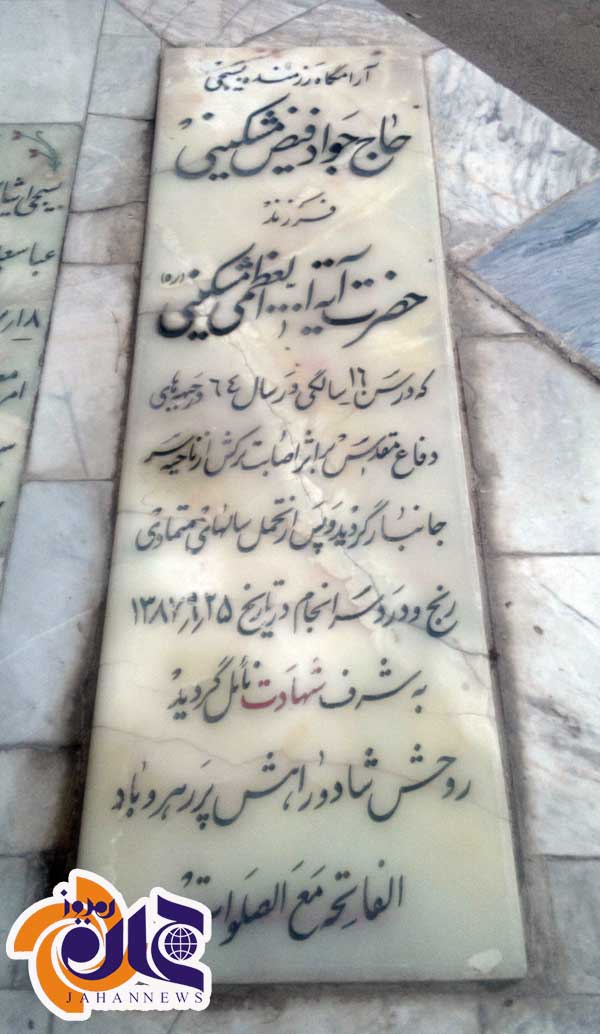 آرامگاه رزمنده بسیجی
حاج جواد فیض مشکینی
فرزند
حضرت آیة ا... العظمی مشکینی (ره)
که در سن ۱۶ سالگی در سال ۶۴ در جبهه های
دفاع مقدس بر اثر اصابت ترکش از ناحیه سر
جانباز گردید و پس از تحمل سالهای متمادی
رنج و درد سرانجام در تاریخ ۱۳۸۷/۹/۲۵
به شرف شهادت نائل گردید
روحش شاد و راهش پر رهرو باد
الفاتحة مع الصلوات
عباسعلی
جهان امروز
JAHANNEWS